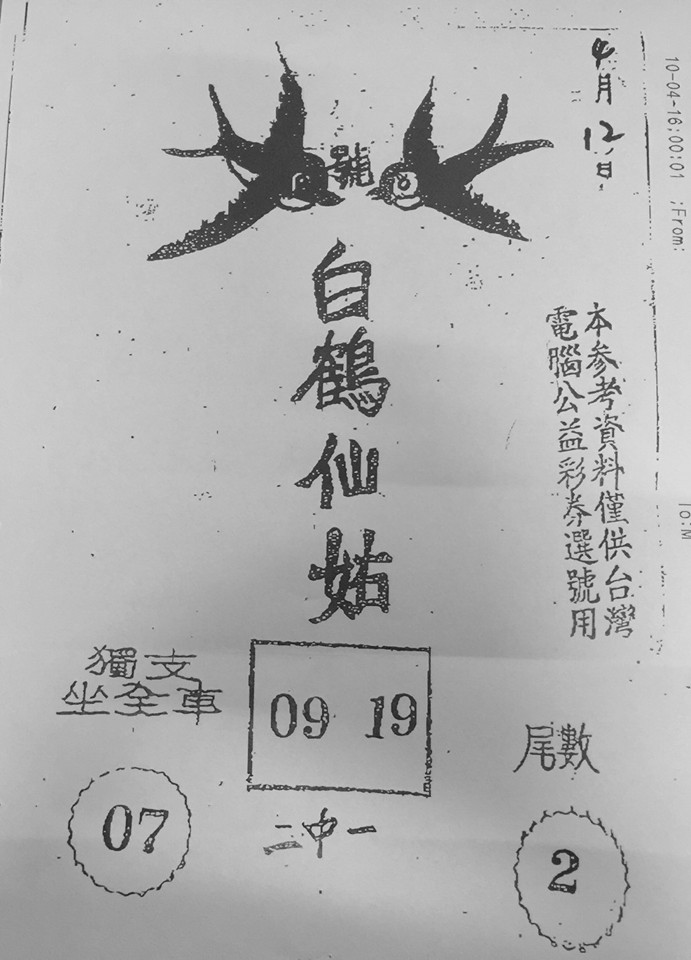 4月12日
10-04-16;00:01 ;From:
To:M
號
白鶴仙姑
本参考資料僅供台灣
電腦公益彩券選號用
獨支
坐全車
07
09 19
二中一
尾數
2